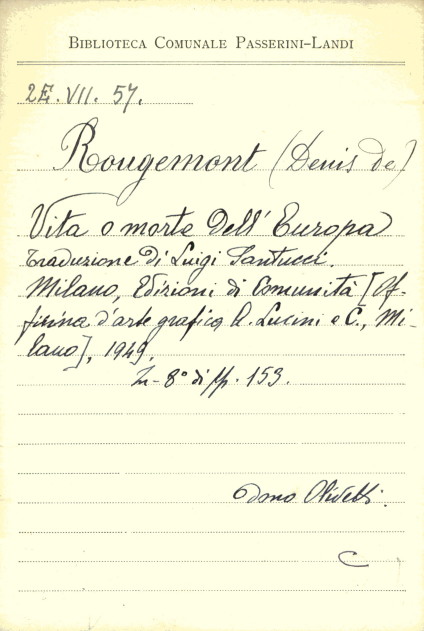 BIBLIOTECA COMUNALE PASSERINI-LANDI
2E. VII. 57.
Rougemont (Denis de)
Vita o morte dell' Europa
Traduzione di Luigi Santucci.
Milano, Edizioni di Comunità [Of-
ficina d'arte grafica A. Lucini e C., Mi-
lano], 1949.
In-8° di pp. 153.
dono Olivetti.
C